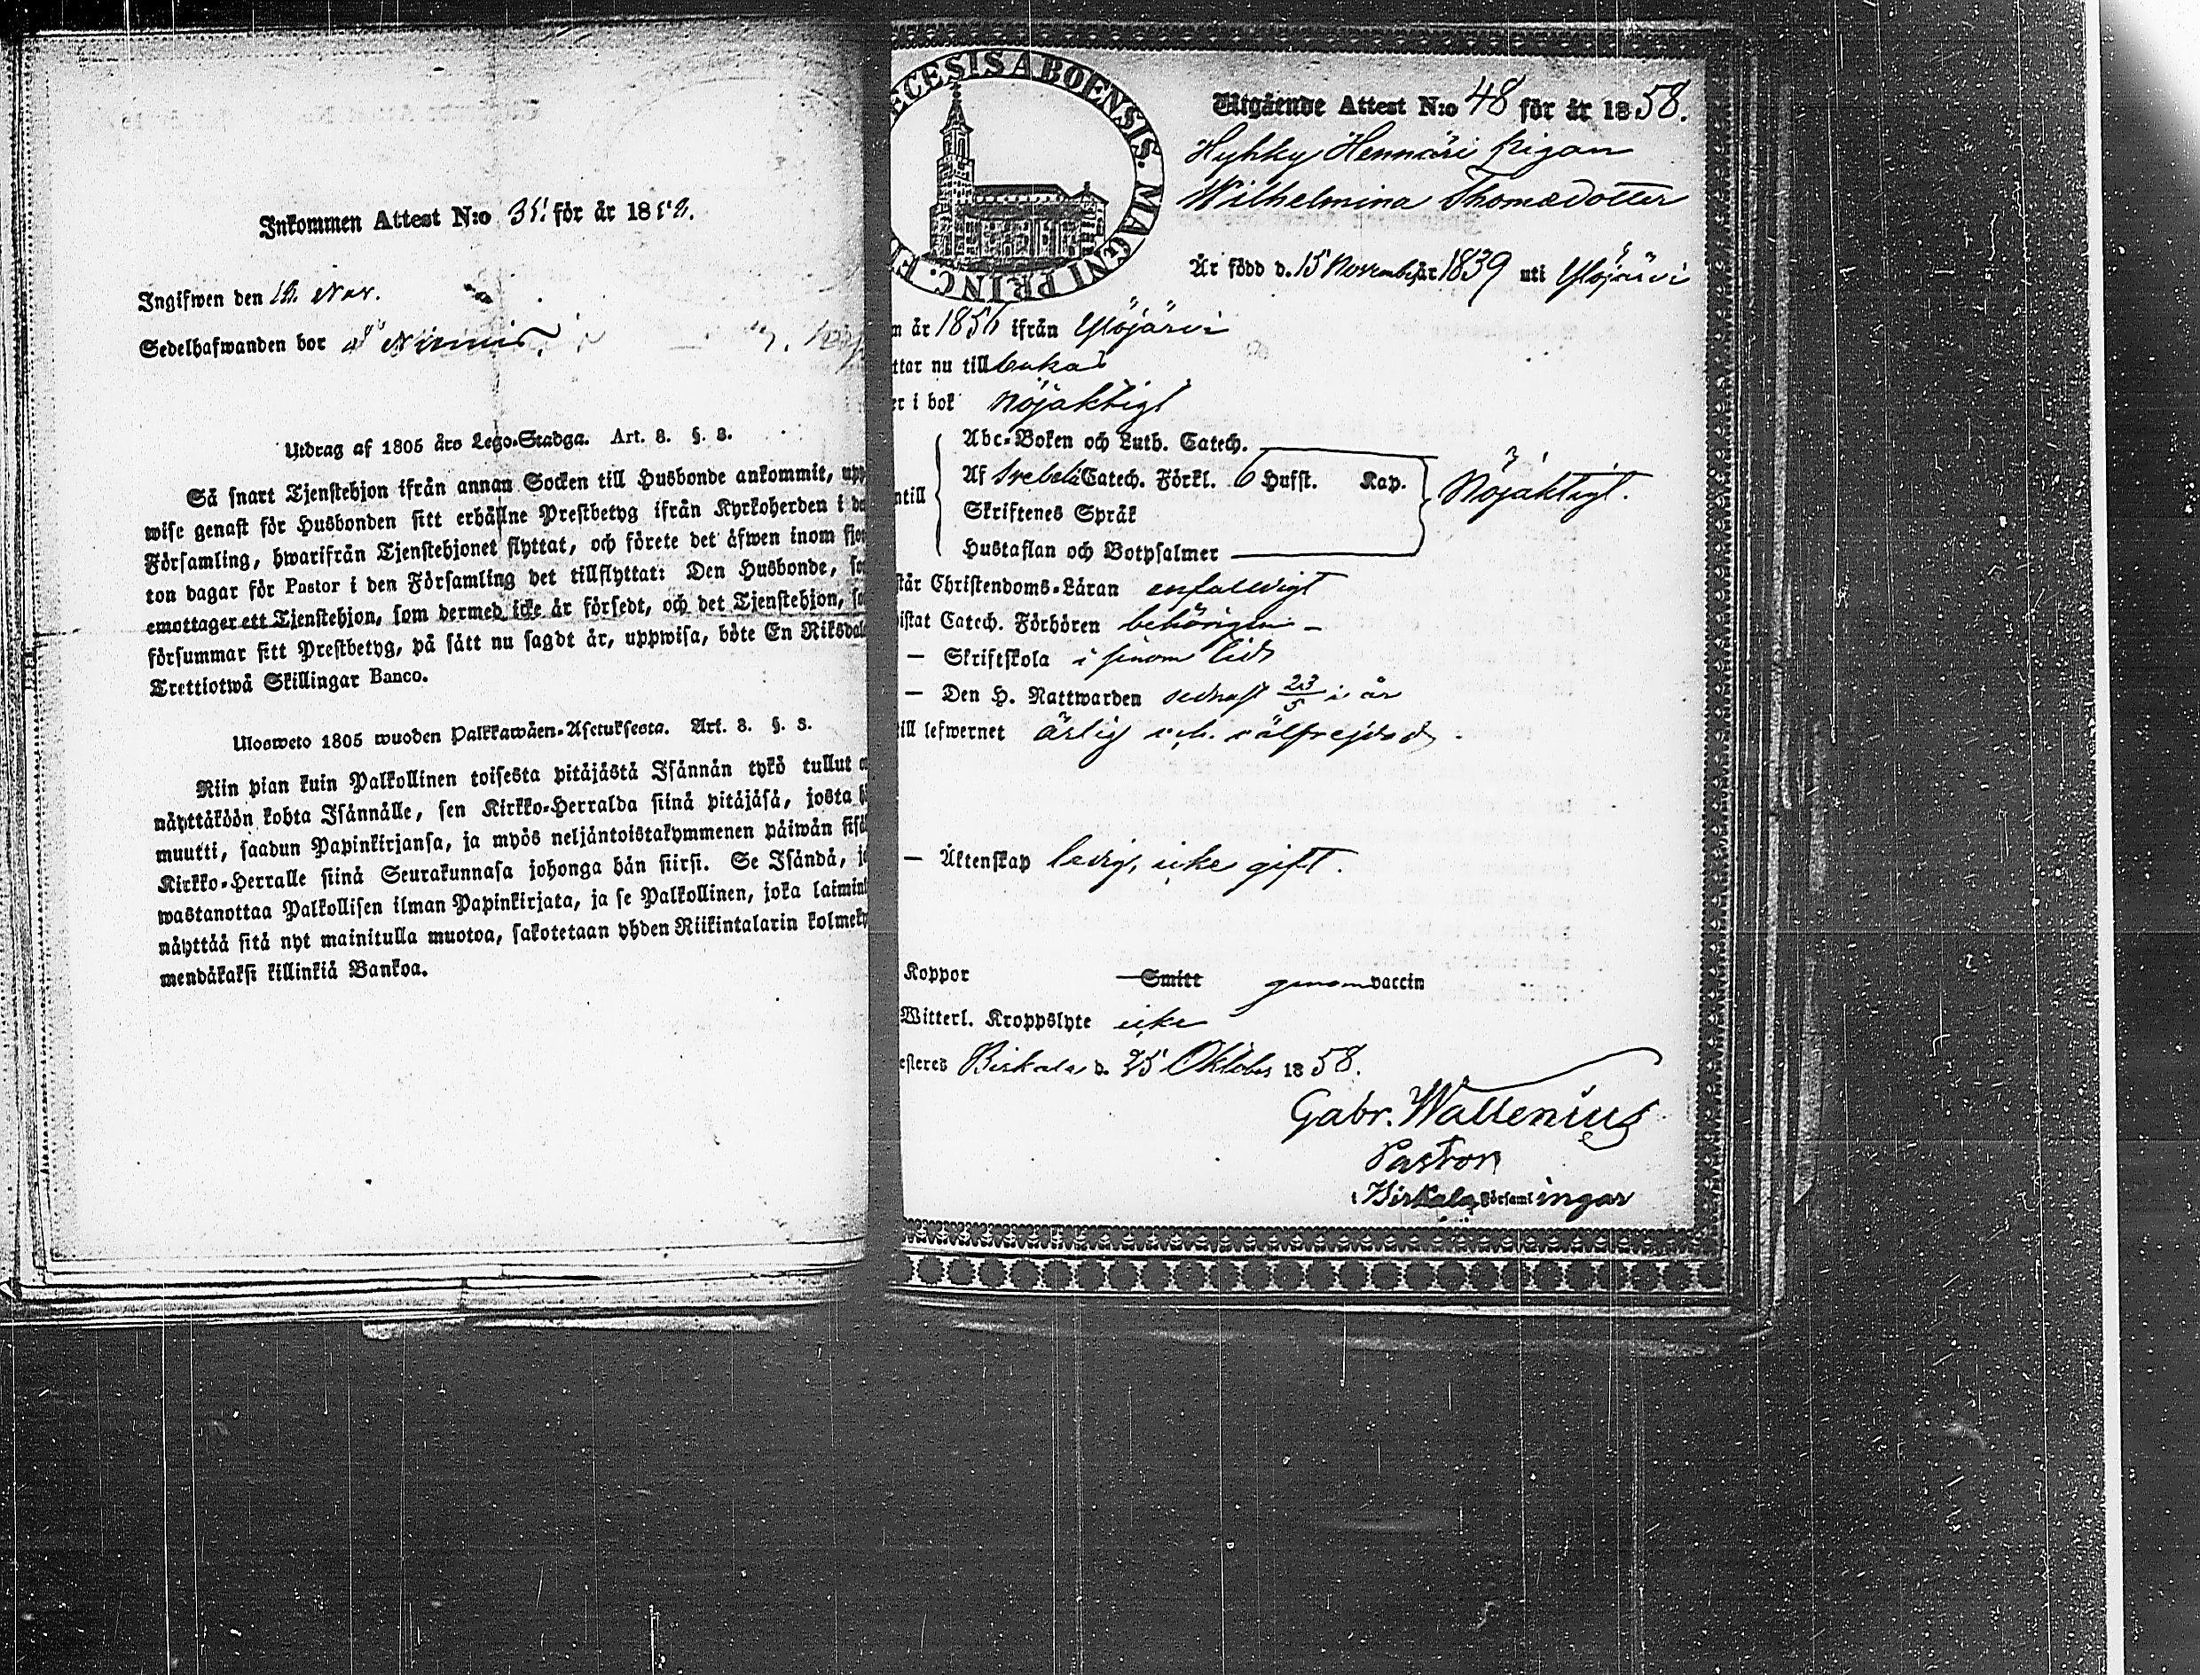 Inkommen Attest N:o 35. för år 1858.
Ingifwen den 12 Nov.
Sedelhafwanden bor
Utdrag af 1805 års Lego-Stadga. Art. 8. §. 3.
Så snart Tjenstehjon ifrån annan Socken till Husbonde ankommit, upp
wise genast för Husbonden sitt erhållne Prestbetyg ifrån Kyrkoherden i de
Församling, hwarifrån Tjenstehjonet flyttat, och förete det åfwen inom fjor
ton dagar för Pastor i den Församling det tillflyttat: Den Husbonde, so
emottager ett Tjenstehjon, som dermed icke är försedt, och det Tjenstehjon, so
försummar sitt Prestbetyg, på sått nu sagdt är, uppwisa, böte En Riksdal
Trettiotwå Skillingar Banco.
Ulosweto 1805 wuoden Palkkawäen-Asetuksesta. Art. 8. §. 3.
Niin pian kuin Palkollinen toisesta pitäjästä Isännän tykö tullut o
näyttäköön kohta Isännälle, sen Kirkko-Herralda siinä pitäjäsä, josta h
muutti, saadun Papinkirjansa, ja myös neljäntoistakymmenen päiwän sisä
Kirkko-Herralle siinä Seurakunnasa johonga hän siirsi. Se Isändä, jo
wastanottaa Palkollisen ilman Papinkirjata, ja se Palkollinen, joka laimin
näyttää sitä nyt mainitulla muotoa, sakotetaan yhden Riikintalarin kolmeky
mendäkaksi killinkiä Bankoa.
ECESIS ABOENSIS. MAGNI PRINC. F
Utgående Attest N:o 48 för år 1858.
Hyhky Hennäri pigan
Wilhelmina Thomædotter
Är född d. 15 November år 1839 uti Ylöjärvi
n år 1856 ifrån Ylöjärvi
ttar nu till
er i bok nöjaktigt
Abc-Boken och Luth. Catech.
ntill
Af Svebeli Catech. Förkl. 6 Hufst. Kap.
Nöjaktigt.
Skriftenes Språk
Hustaflan och Botpsalmer
står Christendoms-Läran enfaldigt
istat Catech. Förhören behörigen
— Skriftskola i sinom tid
— Den H. Nattwarden sednast 23/5 i år
till lefwernet ärlig och välfrejdad.
— Äktenskap ledig, icke gift.
Koppor Smitt genom vaccin
Witterl. Kroppslyte icke
esteres Birkala d. 25 Oktober 1858.
Gabr. Wallenius
Pastor
i Birkala Församlingar